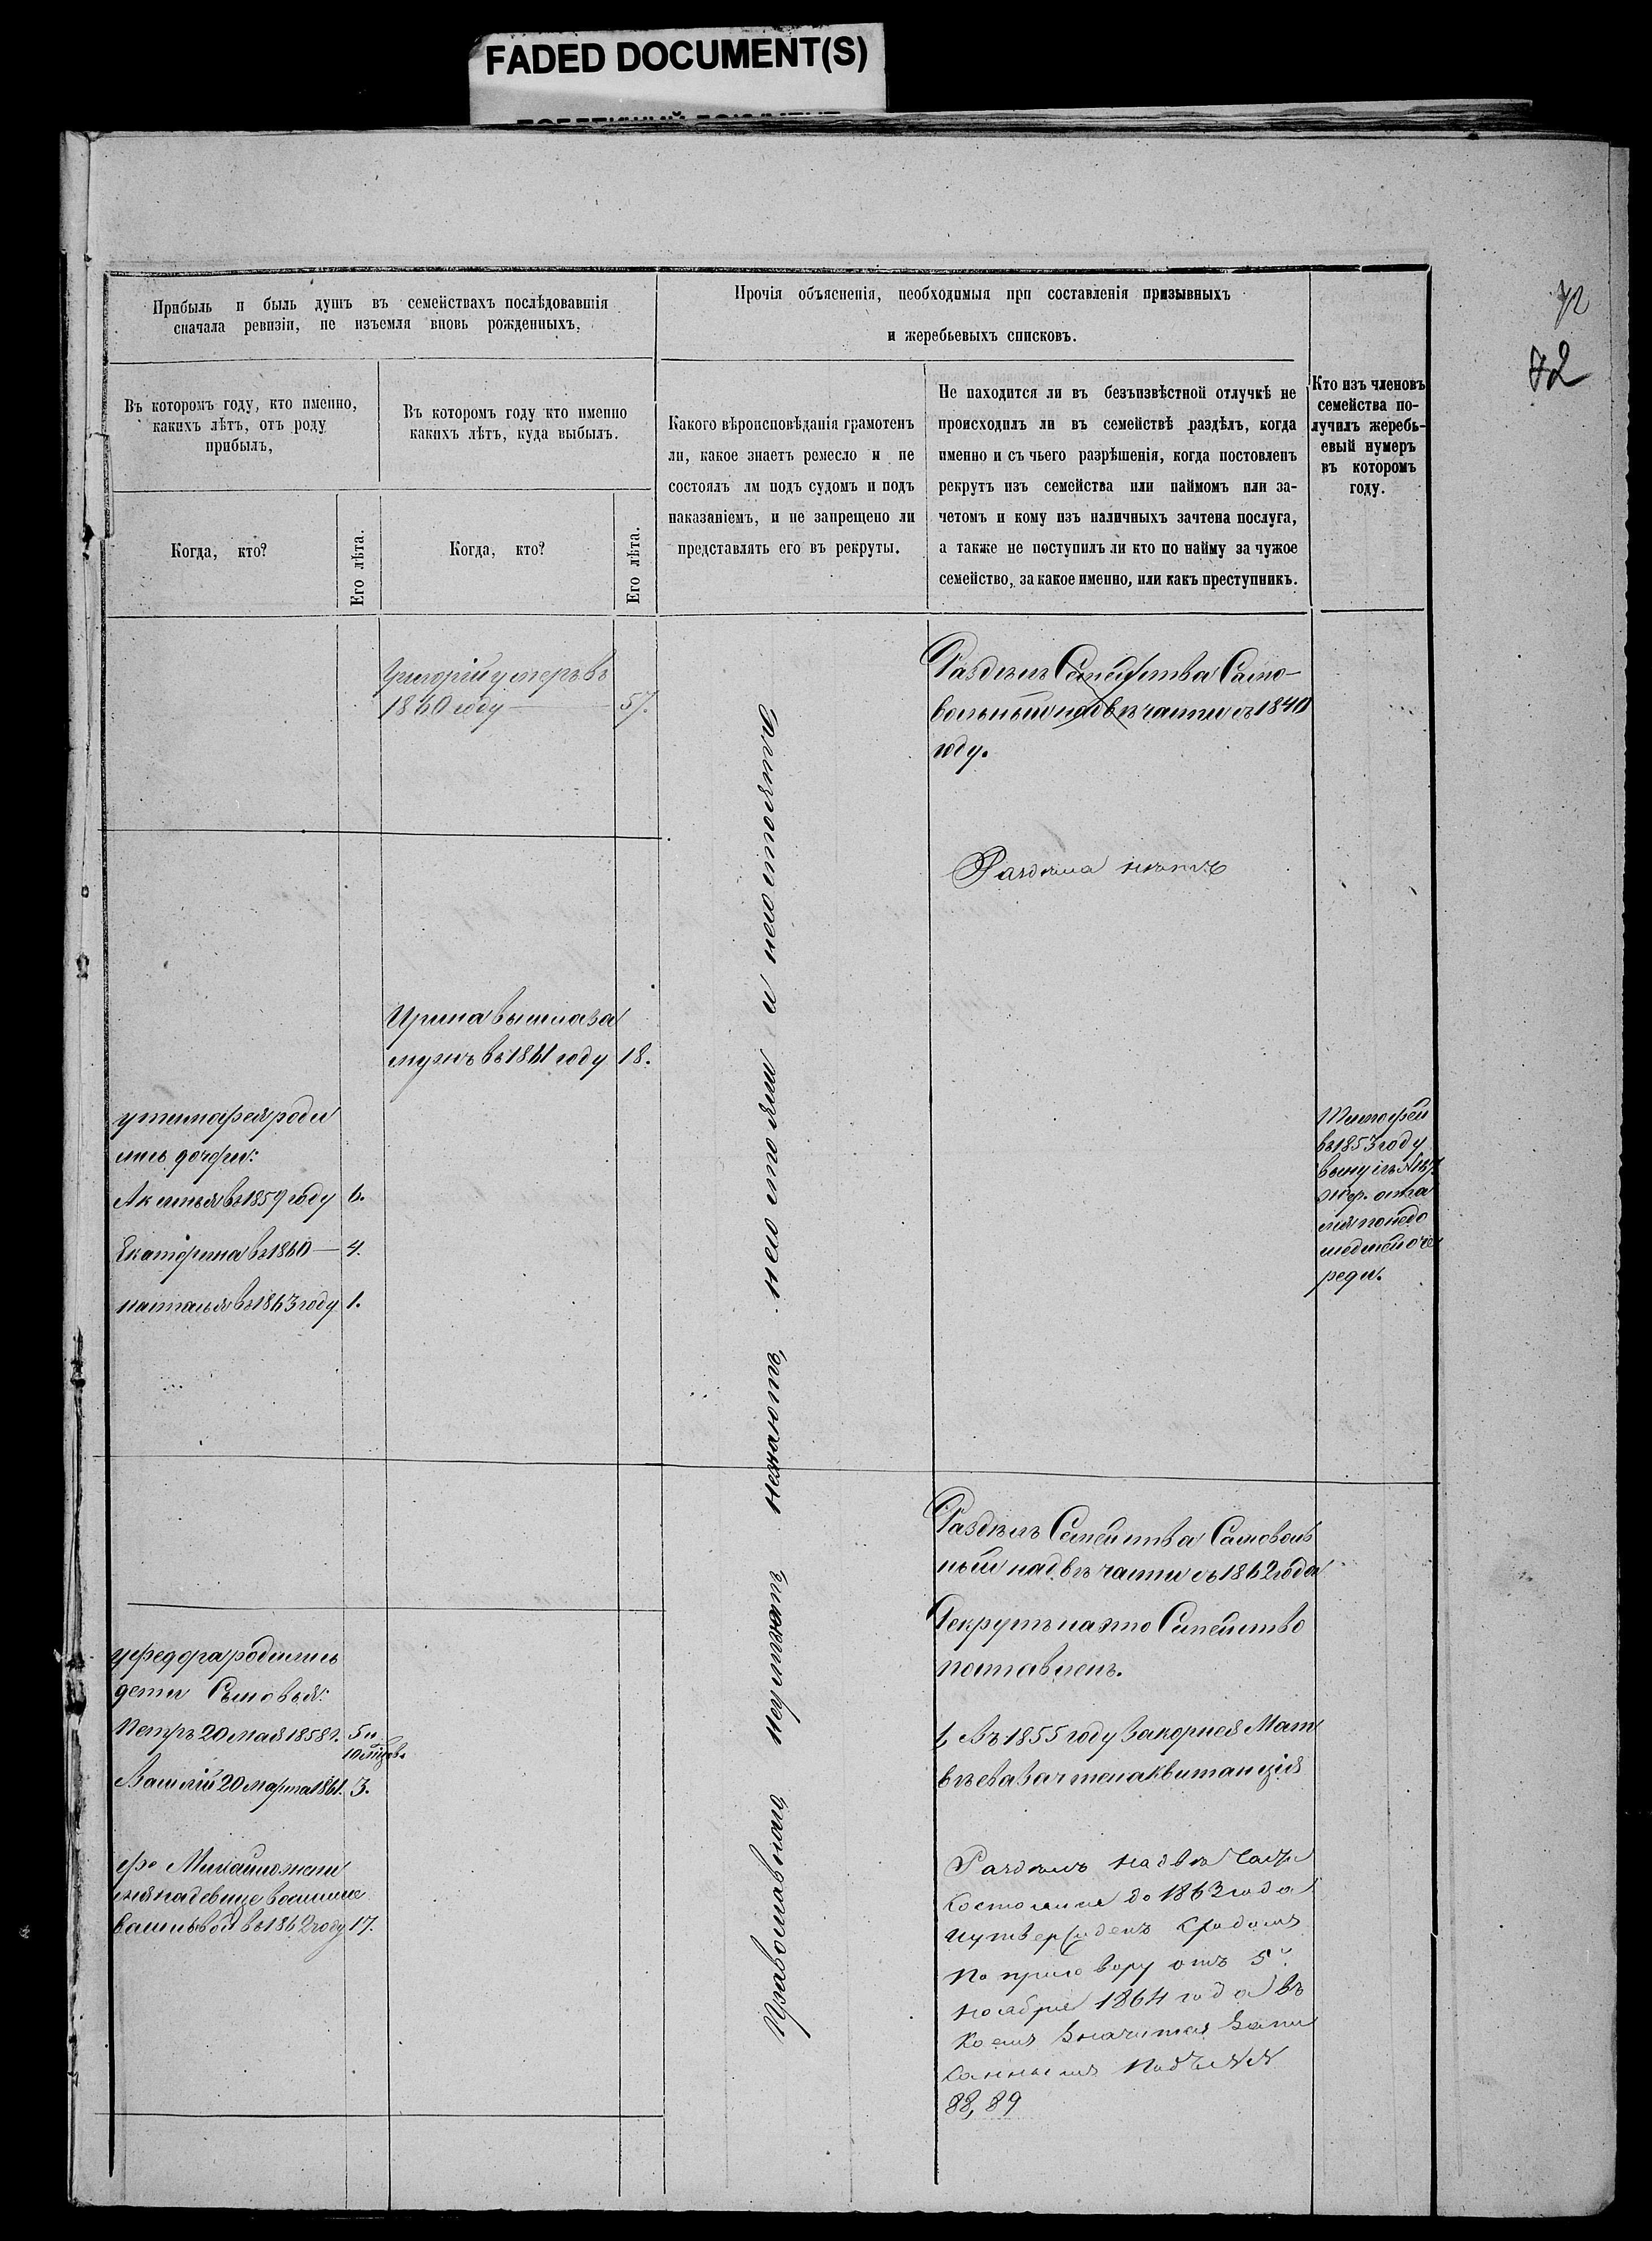 FADED DOCUMENT(S)
72
72
Прибыль и быль душъ въ семействахъ послѣдовавшія
сначала ревизіи, не изъемля вновь рожденныхъ.
Прочія объясненія, необходимыя при составленія призывныхъ
и жеребьевыхъ списковъ.
Въ которомъ году, кто именно,
какихъ лѣтъ, отъ роду
прибылъ,
Въ которомъ году кто именно
какихъ лѣтъ, куда выбылъ.
Какого вѣроисповѣданія грамотенъ
ли, какое знаетъ ремесло и не
состоялъ ли подъ судомъ и подъ
наказаніемъ, и не запрещено ли
представлять его въ рекруты.
Не находится ли въ безъизвѣстной отлучкѣ не
происходилъ ли въ семействѣ раздѣлъ, когда
именно и съ чьего разрѣшенія, когда постовленъ
рекрутъ изъ семейства или наймомъ или за-
четомъ и кому изъ наличныхъ зачтена послуга,
а также не поступилъ ли кто по найму за чужое
семейство, за какое именно, или какъ преступникъ.
Кто изъ членовъ
семейства по-
лучилъ жеребь-
евый нумеръ
въ которомъ
году.
Когда, кто?
Его лѣта.
Когда, кто?
Его лѣта.
Григорій умеръ въ
1860 году — 57.
Раздѣлъ Семейства Само-
вольный на двѣ части съ 1840
году.
Раздѣла нѣтъ
Ирина вышла за
мужъ въ 1861 году 18.
у тимофея роди
лись дочери:
Аксинья въ 1859 году 6.
Екатерина въ 1860 — 4.
наталья въ 1863 году 1.
Тимофей
въ 1853 году
вынулъ №
жер. оста
лся по недо
шедшей оче
реди.
Православнаго, неумѣютъ, незнаютъ, несостояли и несостоятъ
Раздѣлъ Семейства Самоволь
ный на двѣ части съ 1862 года
Рекрутъ на это Семейство
поставленъ.
1, Въ 1855 году За корнея Мат
вѣева Зачтена квитанція
у федора родились
дети Сыновья:
Петръ 20 мая 1858 г. 5 и
10 мѣсяцов.
Василій 20 марта 1861. 3.
Михайло жени
лся на девице васили
васильвой въ 1862 году 17.
Раздѣлъ на двѣ Части
Состоялся до 1863 года
и утвержденъ Сходомъ
По приговору отъ 5го
ноября 1864 года въ
Коемъ Значится Запи
Саннымъ Подъ №№
88, 89